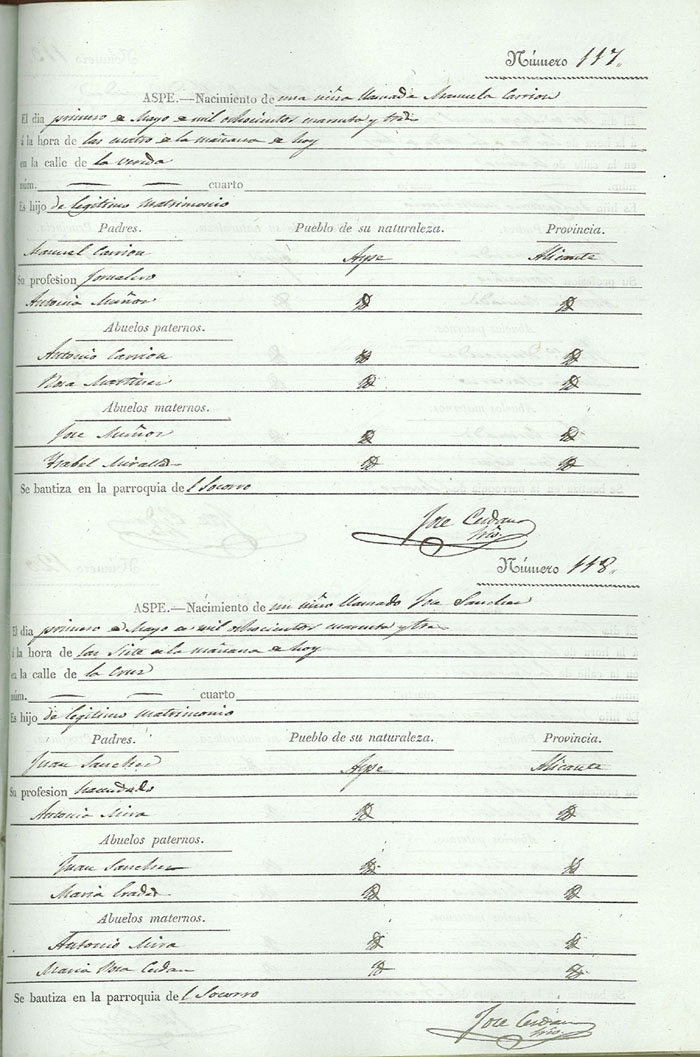 Número 117.
ASPE.—Nacimiento de una niña llamada Manuela Carrion
El dia primero de Mayo de mil ochocientos cuarenta y tres
á la hora de las cuatro de la mañana de hoy
en la calle de la
núm. — — cuarto
Es hijo de legitimo matrimonio
Padres. Pueblo de su naturaleza. Provincia.
Manuel Carrion Aspe Alicante
Su profesion Jornalero
Antonia Muñoz
Abuelos paternos.
Antonio Carrion
Rosa Martinez
Abuelos maternos.
Jose Muñoz
Ysabel Miralles
Se bautiza en la parroquia del Socorro
Jose Cerdan
Srio.
Número 118.
ASPE.—Nacimiento de un niño llamado Jose Sanchez
El dia primero de Mayo de mil ochocientos cuarenta y tres
á la hora de las siete de la mañana de hoy
en la calle de la Cruz
núm. — — cuarto
Es hijo de legitimo matrimonio
Padres. Pueblo de su naturaleza. Provincia.
Juan Sanchez Aspe Alicante
Su profesion hacendado
Antonia Mira
Abuelos paternos.
Juan Sanchez
Maria
Abuelos maternos.
Antonio Mira
Maria Rosa Cerdan
Se bautiza en la parroquia del Socorro
Jose Cerdan
Srio.